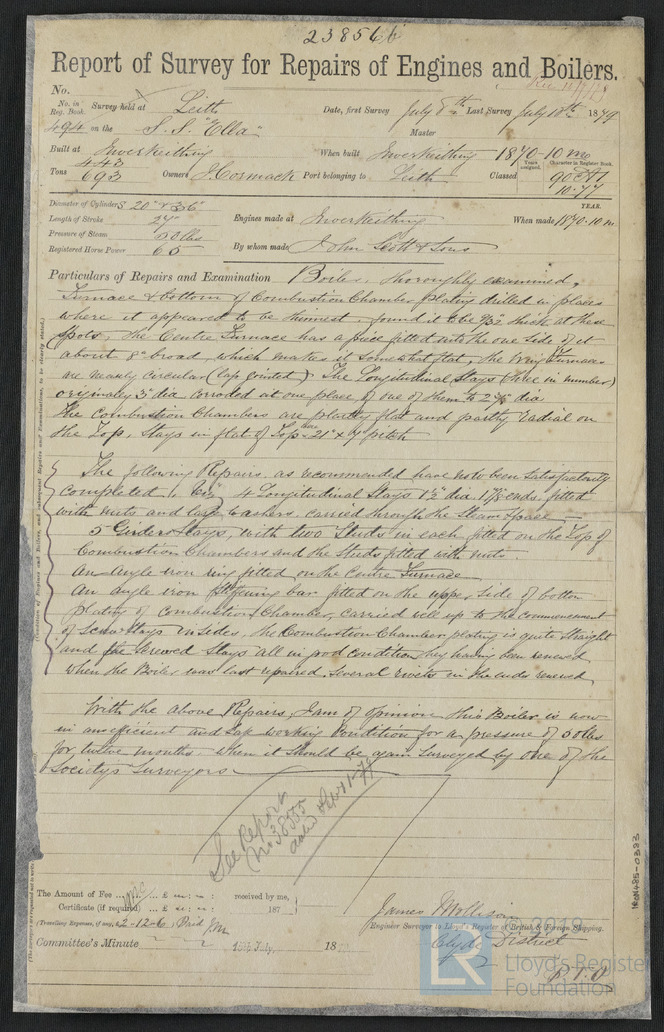 238566
Report of Survey for Repairs of Engines and Boilers.
No.
No. in Reg. Book. Survey held at Leith Date, first Survey July 8th Last Survey July 10th 1879
494 on the S.S. "Ella" Master
Built at Inverkeithing When built Inverkeithing 1870-10 mo
Years Assigned. Character in Register Book.
443
Tons 693 Owners J Cormack Port belonging to Leith Classed 90 A1
10.77
YEAR.
Diameter of Cylinders 20" & 36"
Length of Stroke 27" Engines made at Inverkeithing When made 1870.10 m
Pressure of Steam 60 lbs
Registered Horse Power 65 By whom made John Scott & Sons
Particulars of Repairs and Examination Boiler, thoroughly examined,
Furnace & bottom of Combustion Chamber plating drilled in places
where it appeared to be thinnest, found it to be 9/32 thick at these
spots, the Centre Furnace has a piece fitted into the one side of it
about 8" broad, which makes it somewhat flat, the Wing Furnaces
are nearly circular (lap jointed) The Longitudinal Stays (three in number)
originaly 3" dia. corroded at one place of one of them to 2 dia.
the Combustion Chambers are partly flat and partly radial on
the Top, Stays in flat of Top are 21" x 7" pitch
The following Repairs, as recommended have now been satisfactorily
completed, 4 Longitudinal Stays 1½" dia. 1⅞ ends fitted
with nuts and large washers, carried through the Steam Space
5 Girder Stays, with two Studs in each fitted on the Top of
Combustion Chambers and the Studs fitted with nuts.
An Angle iron ring fitted on the Centre Furnace
An angle iron stiffening bar fitted on the upper side of bottom
plating of Combustion Chamber, carried well up to the commencement
of Screw Stays in Sides, the Combustion Chamber plating is quite straight
and the Screwed Stays all in good condition they having been renewed
when the Boiler was last repaired, Several rivets in the ends renewed
With the above Repairs, I am of opinion this Boiler is now
in an efficient and Safe working condition for a pressure of 60 lbs
for twelve months, when it should be again Surveyed by one of the
Society's Surveyors
See Report
No 38555
dated Sept 1-79
The Amount of Fee ... £ : : received by me,
Certificate (if required) ... £ : : 187
(Travelling Expenses, if any, £2-12-6) Paid JM
Committee's Minute 15th July, 18
James Mollison
Engineer Surveyor to Lloyd's Register of British & Foreign Shipping.
Clyde District
P.T.O
© 2019
LR
Lloyd's Register
Foundation
IRON485-0383